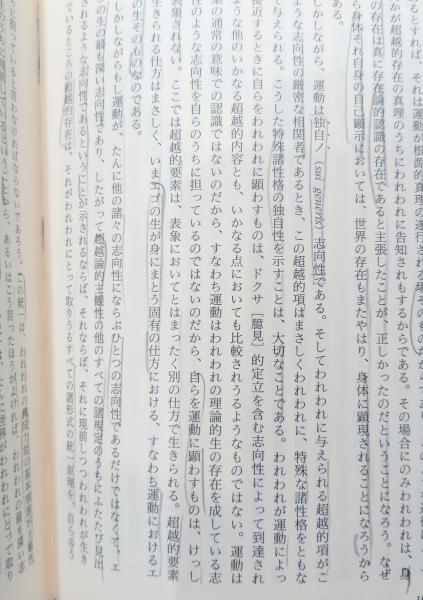 あるとすれば、それは運動が根源的真理の遂行される場そのもの
かが超越的存在の真理のうちにわれわれに告知されもするからである。その場合にのみわれわれは、身
の存在は真に存在論的認識の存在であると主張したことが、正しかったのだということになろう。なぜ
ら身体それ自身の自己顕示においては、世界の存在もまたやはり、身体に顕現されることになろうから
ある。
しかしながら、運動は独自ノ(sui generis)志向性である。そしてわれわれに与えられる超越的項がこ
ような志向性の厳密な相関者であるとき、この超越的項はまさしくわれわれに、特殊な諸性格をともな
て与えられる。こうした特殊諸性格の独自性を示すことは、大切なことである。われわれが運動によっ
接近するときに自らをわれわれに顕わすものは、ドクサ[臆見]的定立を含む志向性によって到達され
ような他のいかなる超越的内容とも、いかなる点においても比較されうるようなものではない。運動は
の通常の意味での認識ではないのだから、すなわち運動はわれわれの理論的生の存在を成している志
性のような志向性を自らのうちに担っているのではないのだから、自らを運動に顕わすものは、けっし
表象されない。ここでは超越的要素は、表象においてとはまったく別の仕方で生きられる。超越的要素
生きられる仕方はまさしく、いまエゴの生が身にまとう固有の仕方における、すなわち運動におけるエ
の生そのものなのである。
しかしながらもし運動が、たんに他の諸々の志向性にならぶひとつの志向性であるだけではなくて、エ
の生の最も深い志向性であり、したがって超越論的主観性の他のすべての諸規定のうちにふたたび見出
されるような志向性であるということが示されるならば、それならば、それに現前しつつわれわれが生き
ているところの超越的存在は、それがわれわれにとって取りうるすべての諸形式の統一原理を、自らのう